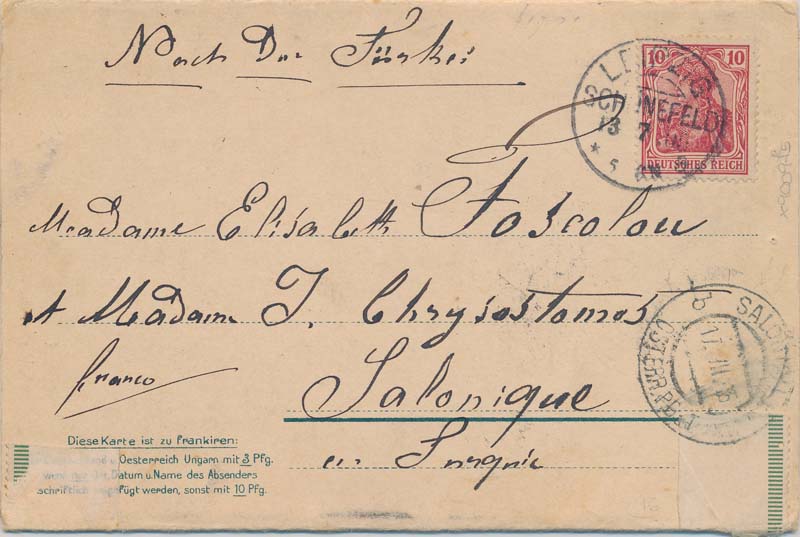 Nach Der Türkei
10 10
DEUTSCHES REICH
SCHÖNEFELD
13 7
Madame Elisabeth Foscolou
et Madame I. Chrysostomos
franco
Salonique
en Turquie
ÖSTERR. POST
Diese Karte ist zu frankiren:
Oesterreich Ungarn mit 3 Pfg.
wenn nur der Datum u. Name des Absenders
schriftlich fügt werden, sonst mit 10 Pfg.